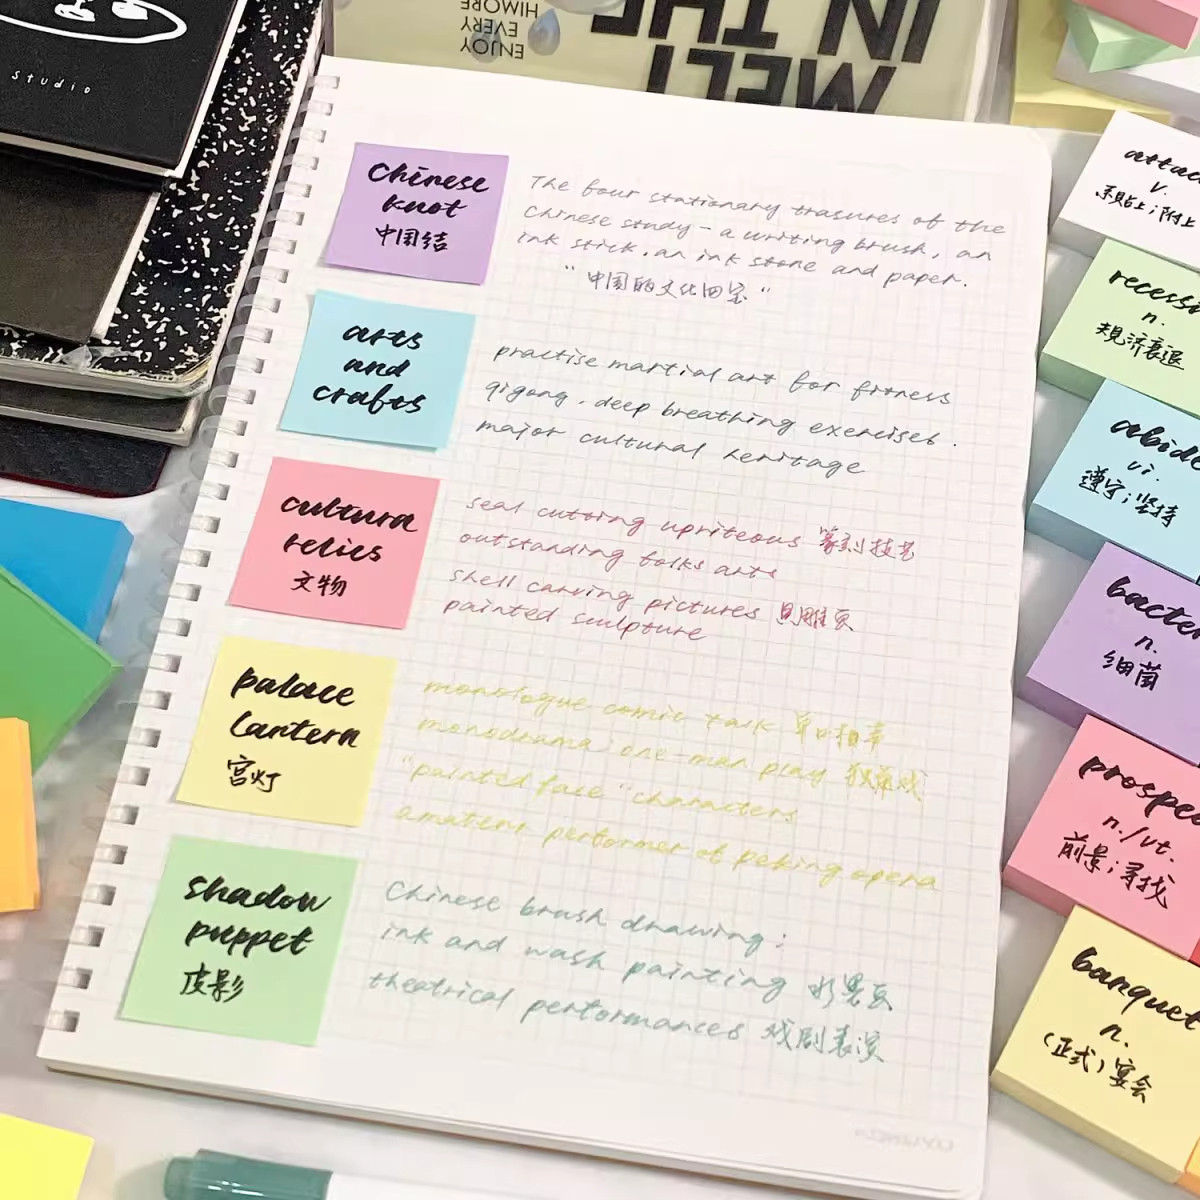 studio
HIMORE
EVERY
ENJOY
IN THE
MELT
Chinese
knot
中国结
The four stationary trasures of the
Chinese study - a writing brush, an
ink stick, an ink stone and paper.
"中国的文化四宝"
arts
and
crafts
practise martial art for fitness
qigong, deep breathing exercises.
major cultural heritage
cultura
relics
文物
seal cutting upriteous 篆刻技艺
outstanding folks arts
shell carving pictures 贝雕页
painted sculpture
palace
lantern
宫灯
monologue comic talk 单口相声
monodrama one-man play 独幕戏
"painted face" characters
amateur performer of peking opera
shadow
puppet
皮影
Chinese brush drawing:
ink and wash painting 水墨页
theatrical performances 戏剧表演
attac
v.
系贴上;附上
recessi
n.
规济衰退
abide
vi.
遵守;坚持
bacter
n.
细菌
prospec
n./vt.
前景;寻找
banquet
n.
(正式)宴会